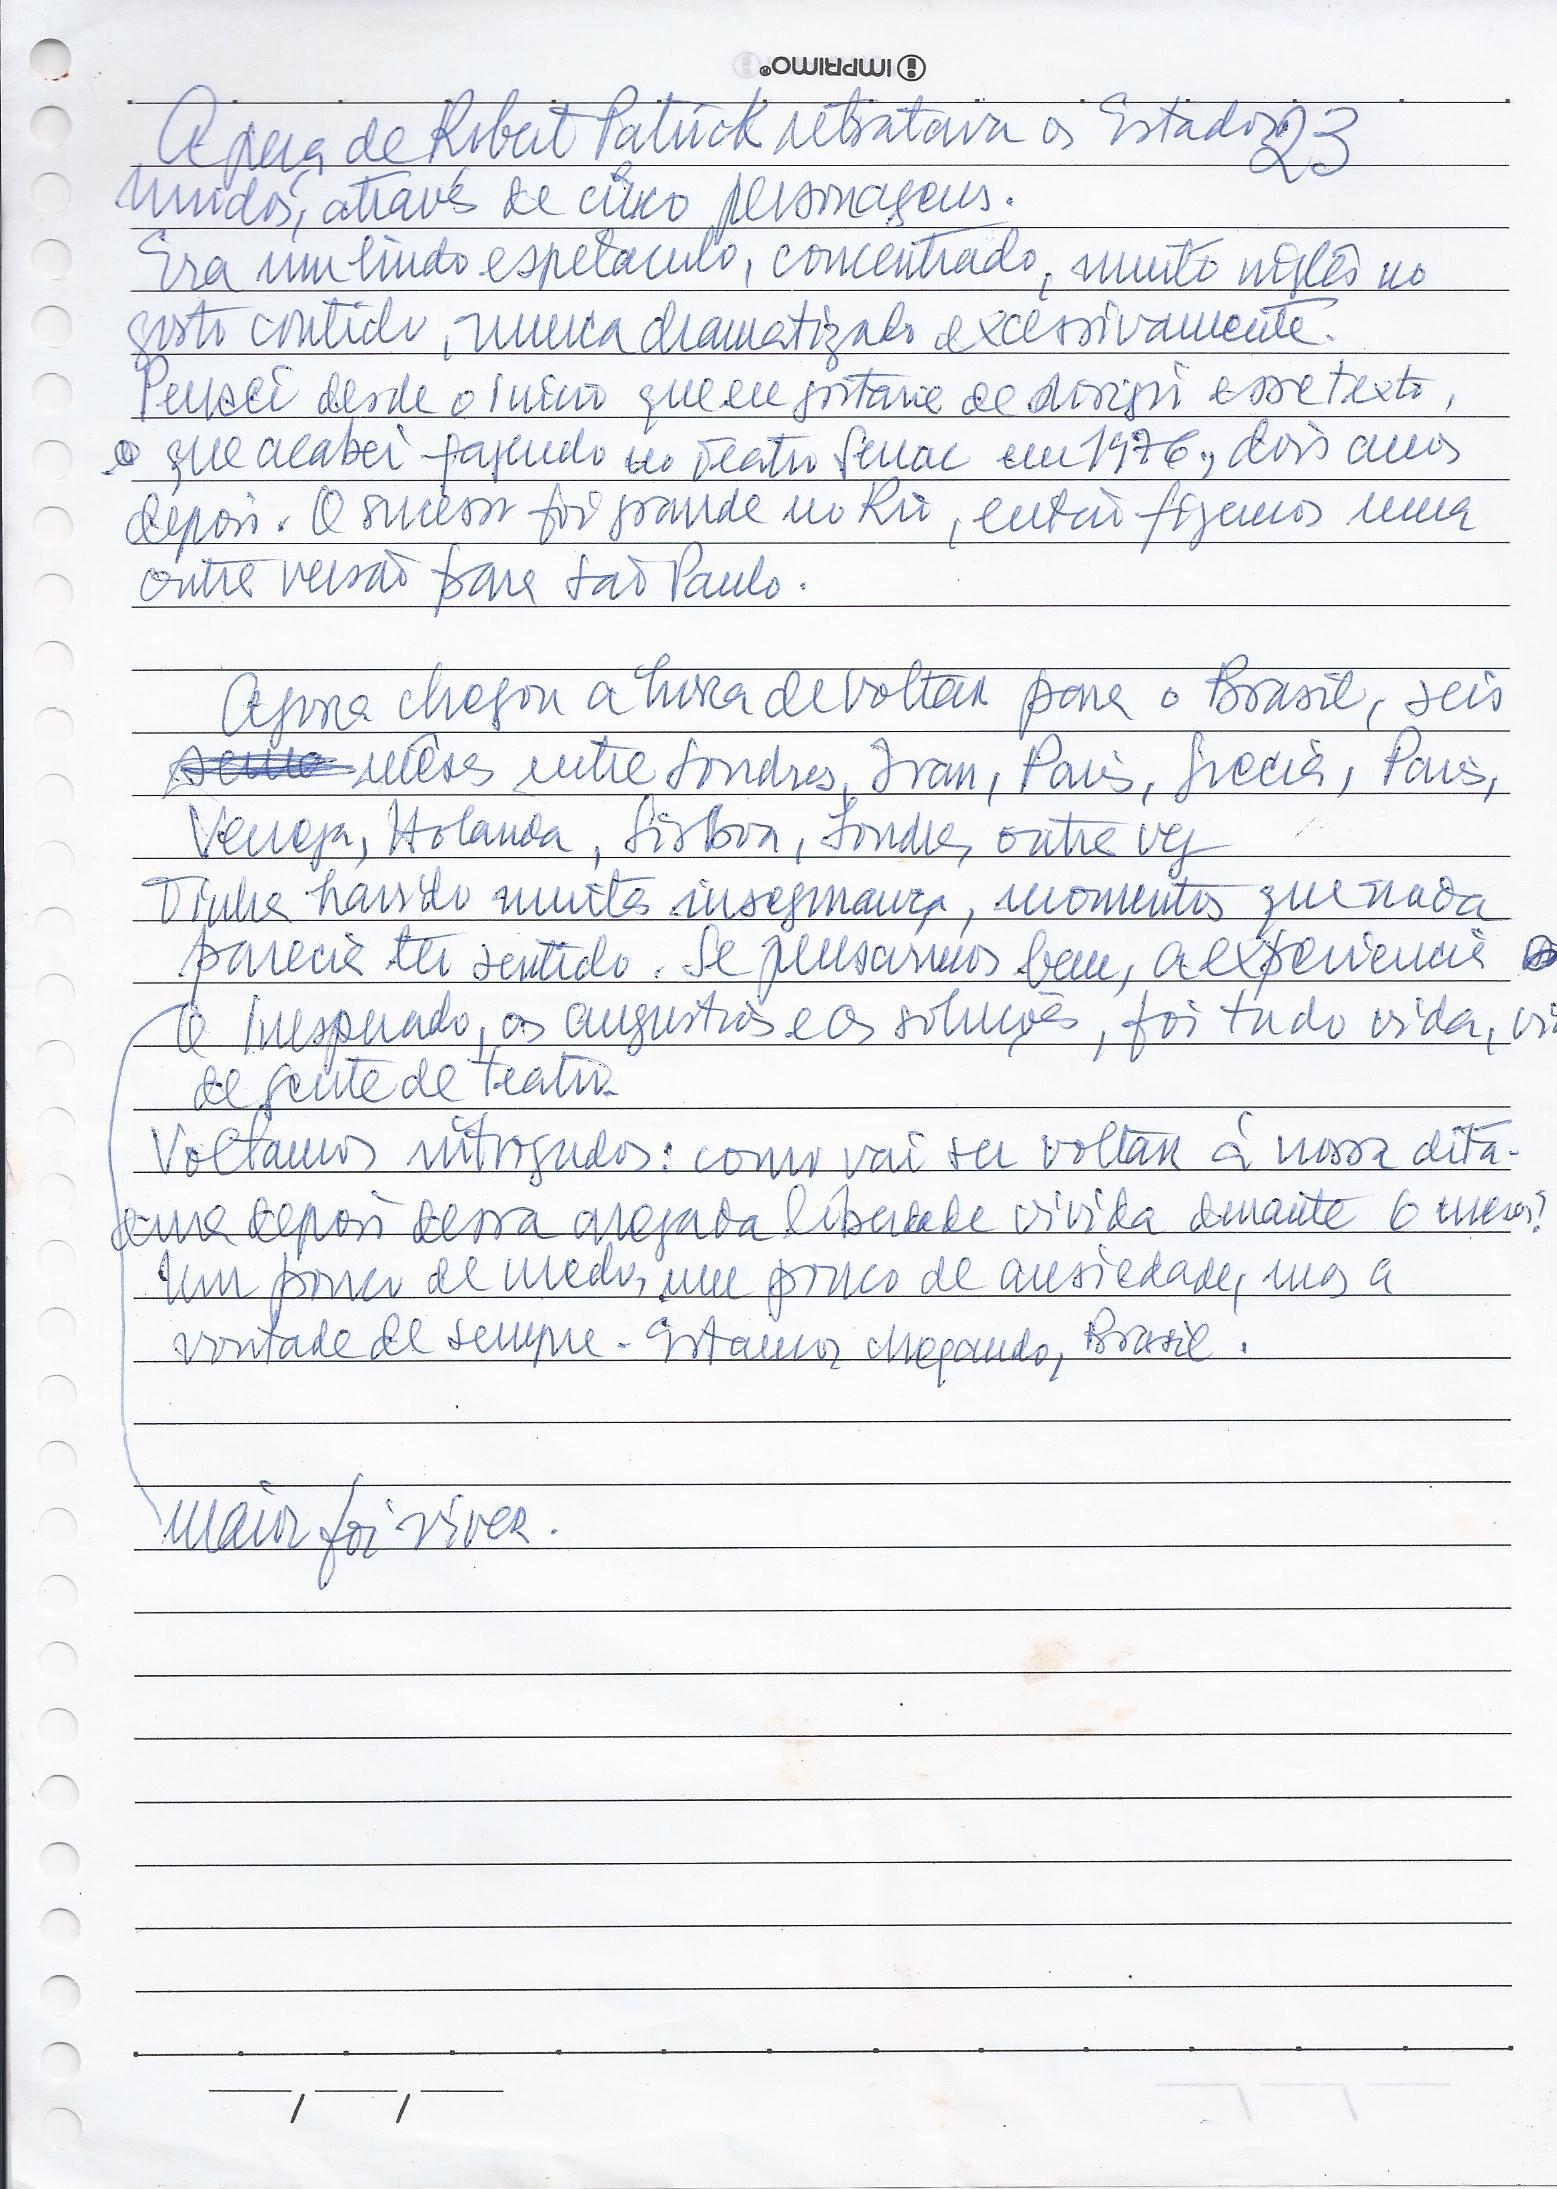 IMPRIMO®
A peça de Robert Patrick retratava os Estados 23
Unidos, através de cinco personagens.
Era um lindo espetáculo, concentrado, muito inglês no
gosto contido, nunca dramatizado excessivamente.
Pensei desde o início que eu gostaria de dirigir esse texto,
o que acabei fazendo no Teatro Senac em 1976, dois anos
depois. O sucesso foi grande no Rio, então fizemos uma
outra versão para São Paulo.
Agora chegou a hora de voltar para o Brasil, seis
meses entre Londres, Iran, Paris, Grecia, Paris,
Veneza, Holanda, Lisboa, Londres, outra vez
Tinha havido muita insegurança, momentos que nada
parecia ter sentido. Se pensarmos bem, a experiencia
O inesperado, as angustias e as soluções, foi tudo vida,
de gente de teatro.
Voltamos intrigados: como vai ser voltar à nossa dita-
dura depois dessa arejada liberdade vivida durante 6 meses?
Um pouco de medo, um pouco de ansiedade, mas a
vontade de sempre - Estamos chegando, Brasil.
maior foi viver.